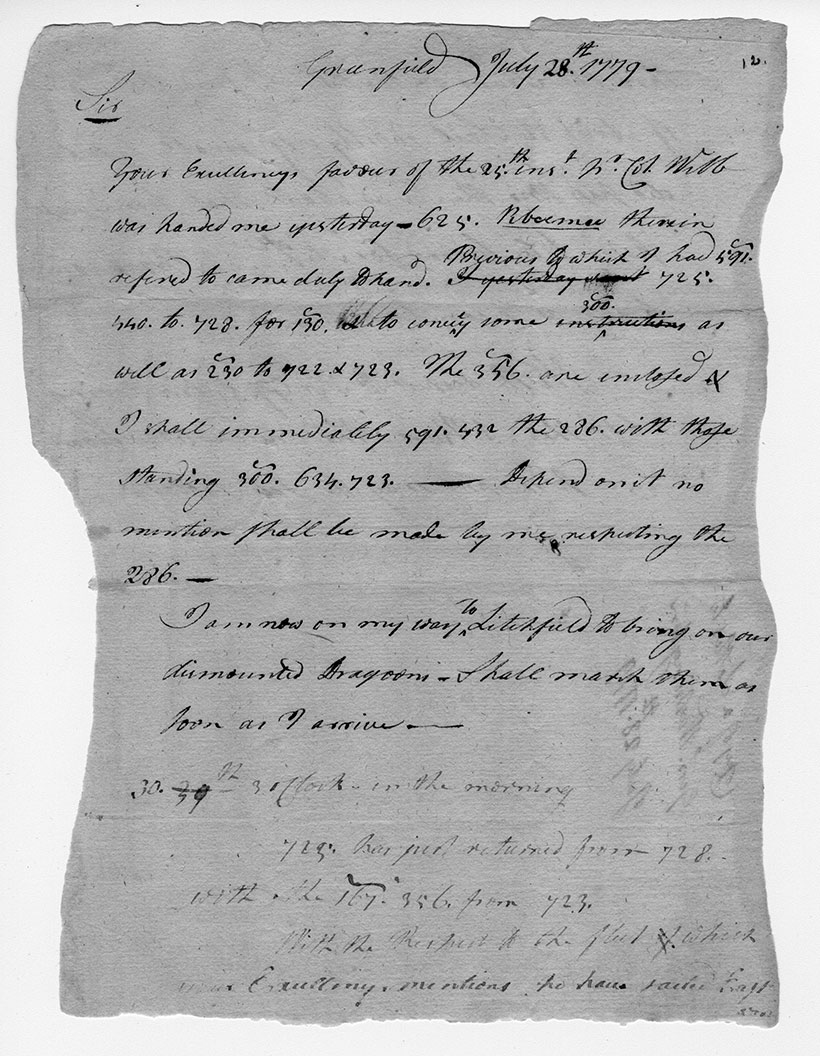 Greenfield July 28.th 1779 -
12.
Sir
Your Excellencys favour of the 25.th inst. pr. Col. Webb
was handed me yesterday - 625. therein
Previous to which I had 591.
refered to came duly to hand. I yesterday 725.
440. to. 728. for 130. to convey some instructions as
300.
well as 230 to 722. & 723. The 356. are inclosed &
I shall immediately 591. 432 the 286. with those
standing 300. 634. 723. — Depend on it no
mention shall be made by me respecting the
286. —
I am now on my way to Litchfield to bring on our
dismounted Dragoons - Shall march them as
soon as I arrive —
30. 29th 3 oClock - in the morning
725. has just returned from 728.
with the 167. 356. from 723.
With the Respect to the fleet which
your Excellency mentions to have sailed East